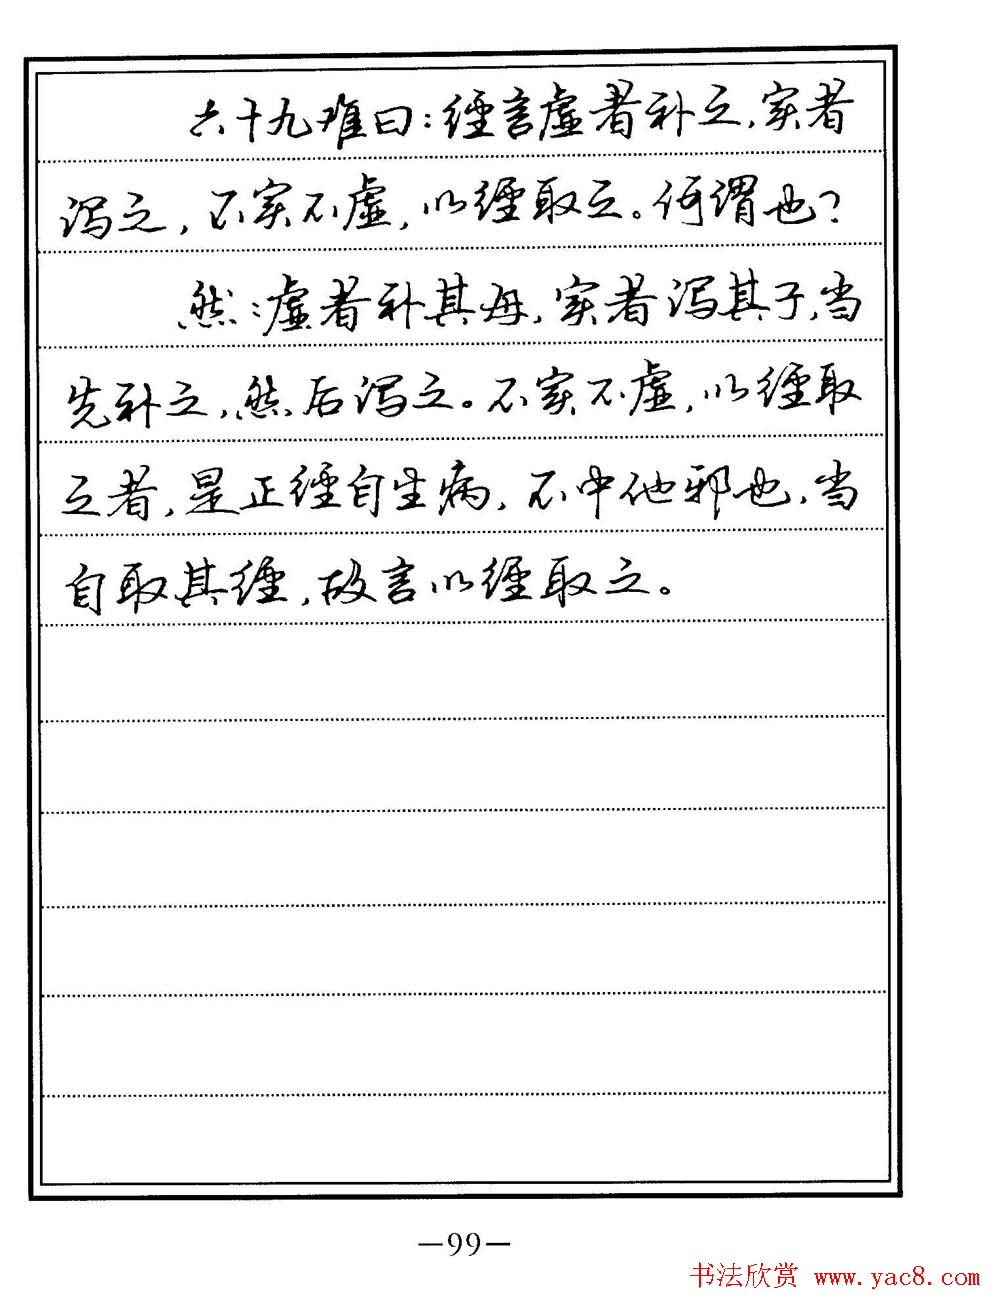 六十九难曰：经言虚者补之，实者
泻之，不实不虚，以经取之。何谓也？
然：虚者补其母，实者泻其子，当
先补之，然后泻之。不实不虚，以经取
之者，是正经自生病，不中他邪也，当
自取其经，故言以经取之。
—99—
书法欣赏 www.yac8.com